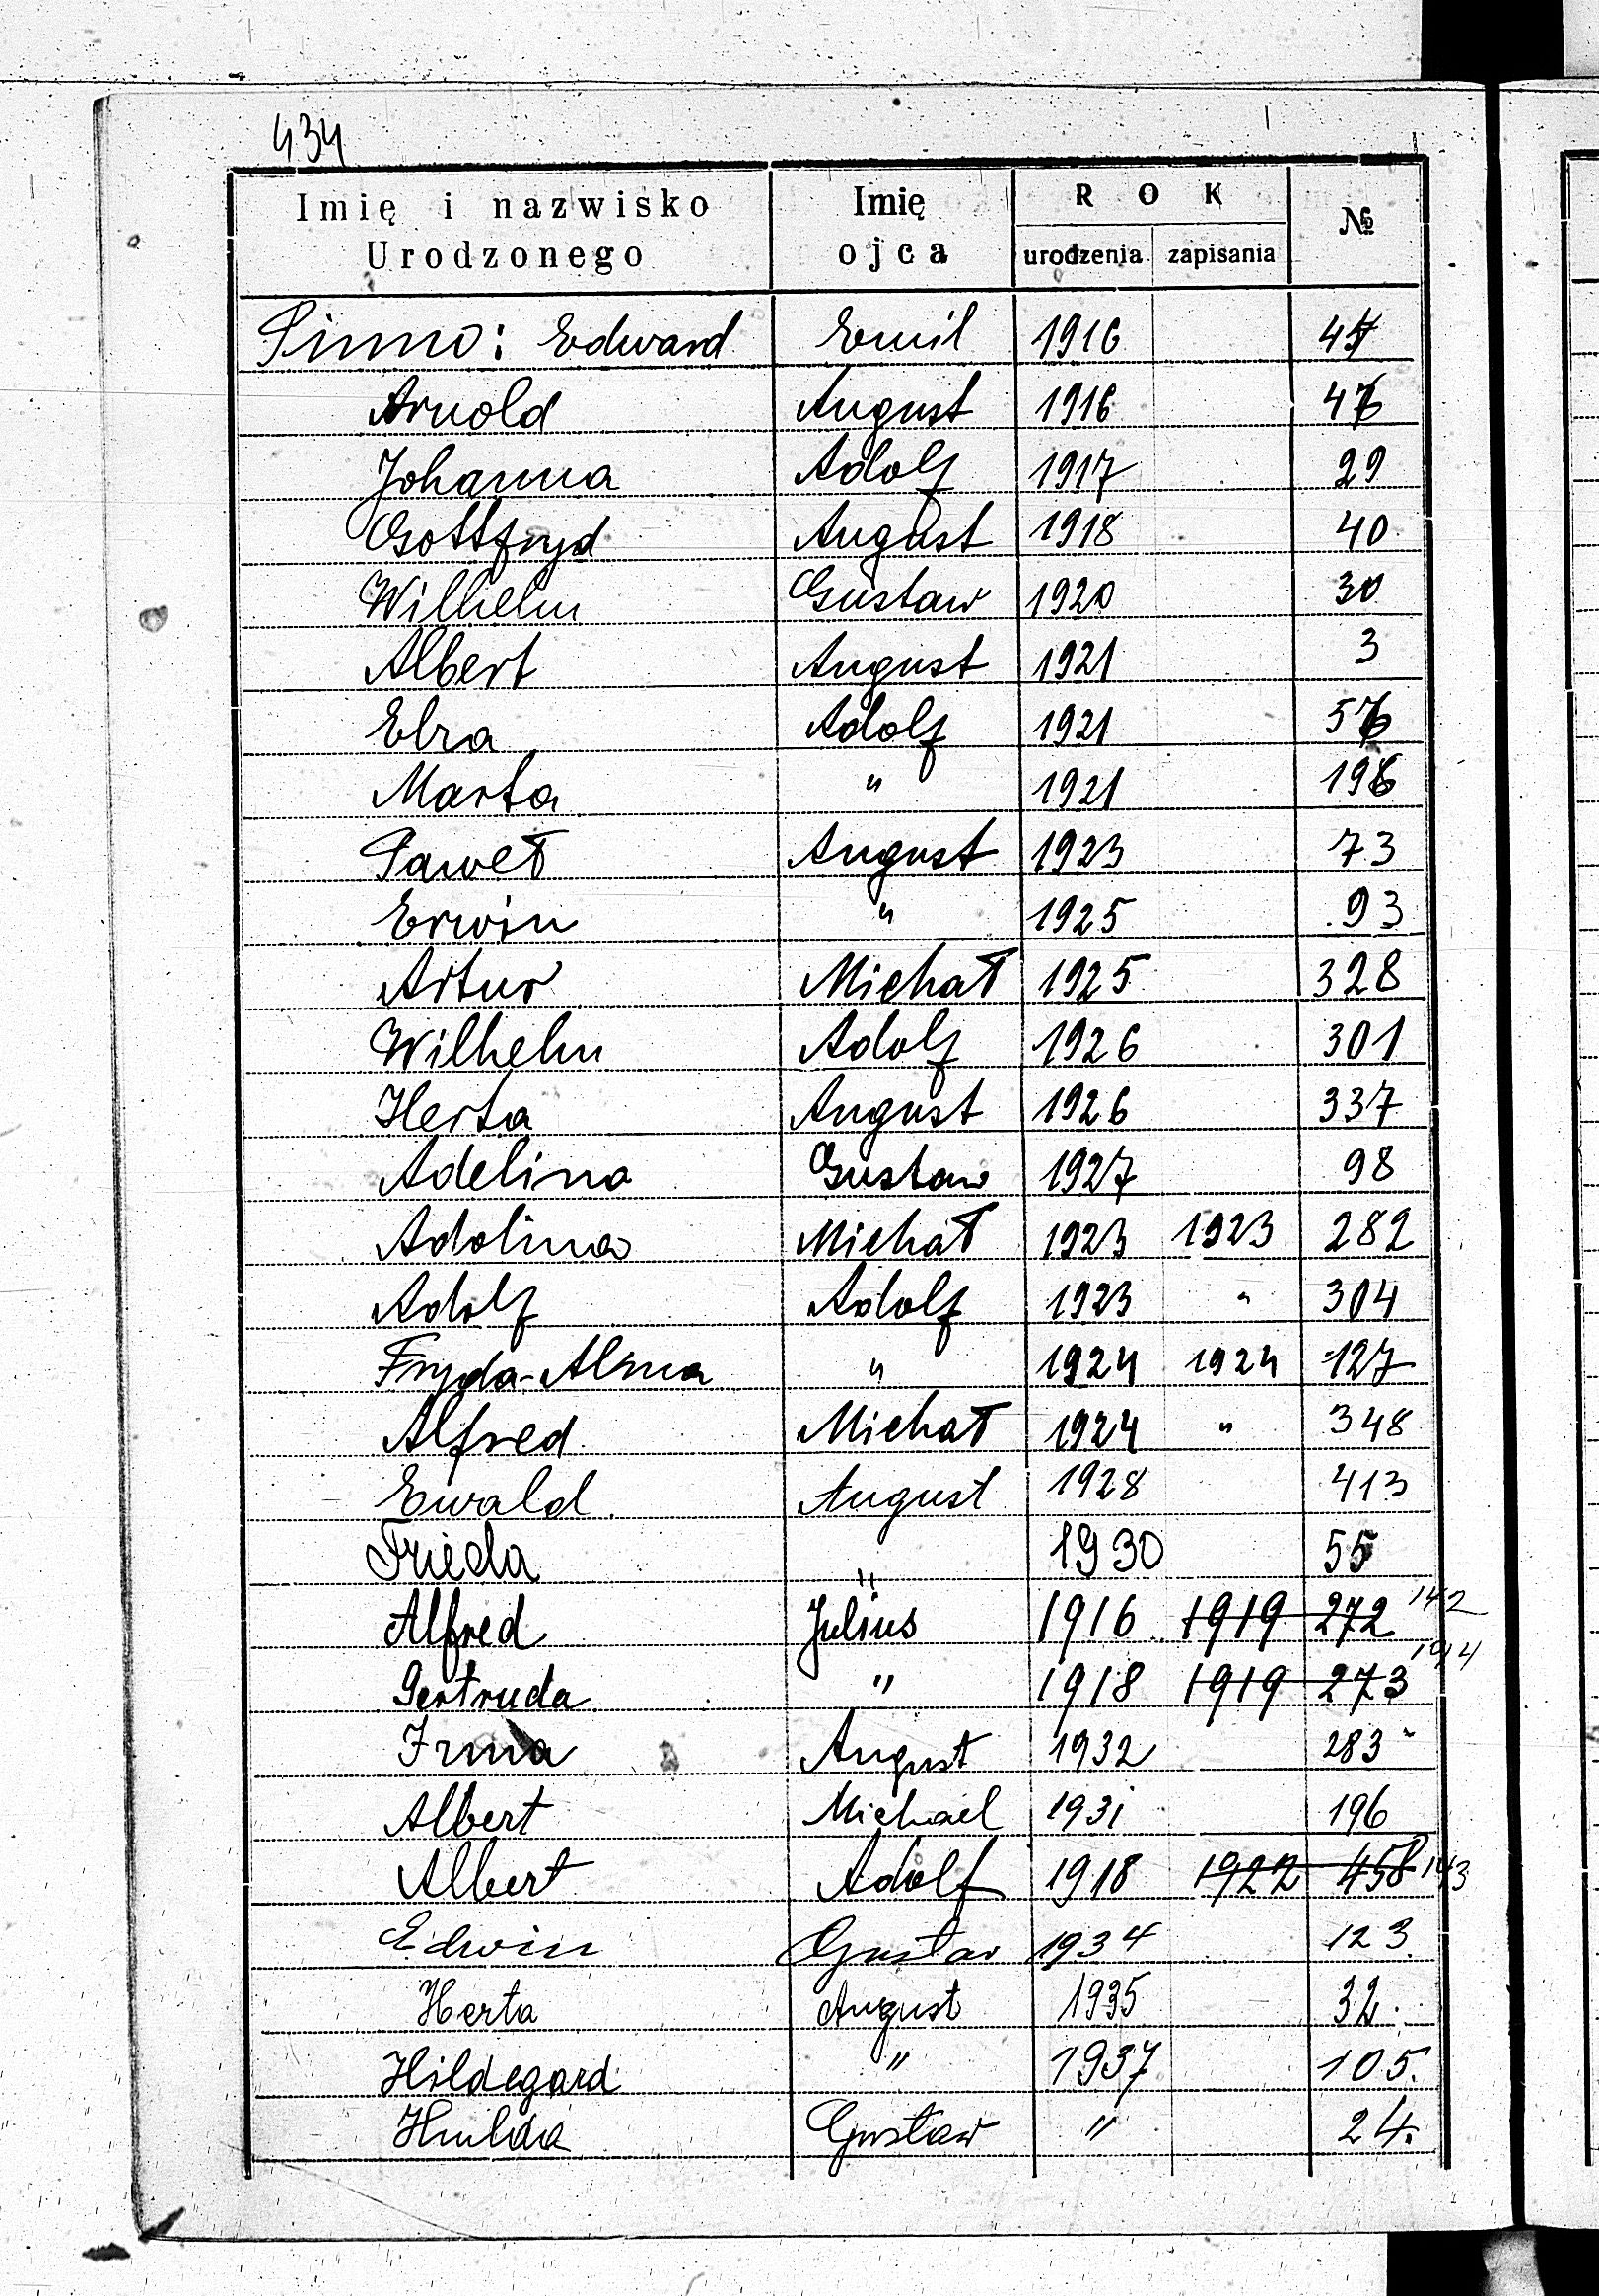 434
Imię i nazwisko Urodzonego | Imię ojca | ROK urodzenia | zapisania | №
Pinno: Edward Emil 1916
Arnold August 1916
Johanna Adolf 1917 29
Gottfryd August 1918 40
Wilhelm Gustaw 1920 30
Albert August 1921 3
Elza Adolf 1921
Marta " 1921
Paweł August 1923 73
Erwin " 1925 93
Artur Michał 1925 328
Wilhelm Adolf 1926 301
Herta August 1926 337
Adelina Gustaw 1927 98
Adolina Michał 1923 1923 282
Adolf Adolf 1923 " 304
Fryda-Alma " 1924 1924 127
Alfred Michał 1924 " 348
Ewald August 1928 413
Frieda " 1930 55
Alfred Julius 1916 1919 272 142
Gertruda " 1918 1919 273
Irma August 1932 283
Albert Michael 1931 196
Albert Adolf 1918 1922 458 143
Edwin Gustav 1934 123
Herta August 1935 32.
Hildegard " 1937 105.
Hulda Gustaw " 24.